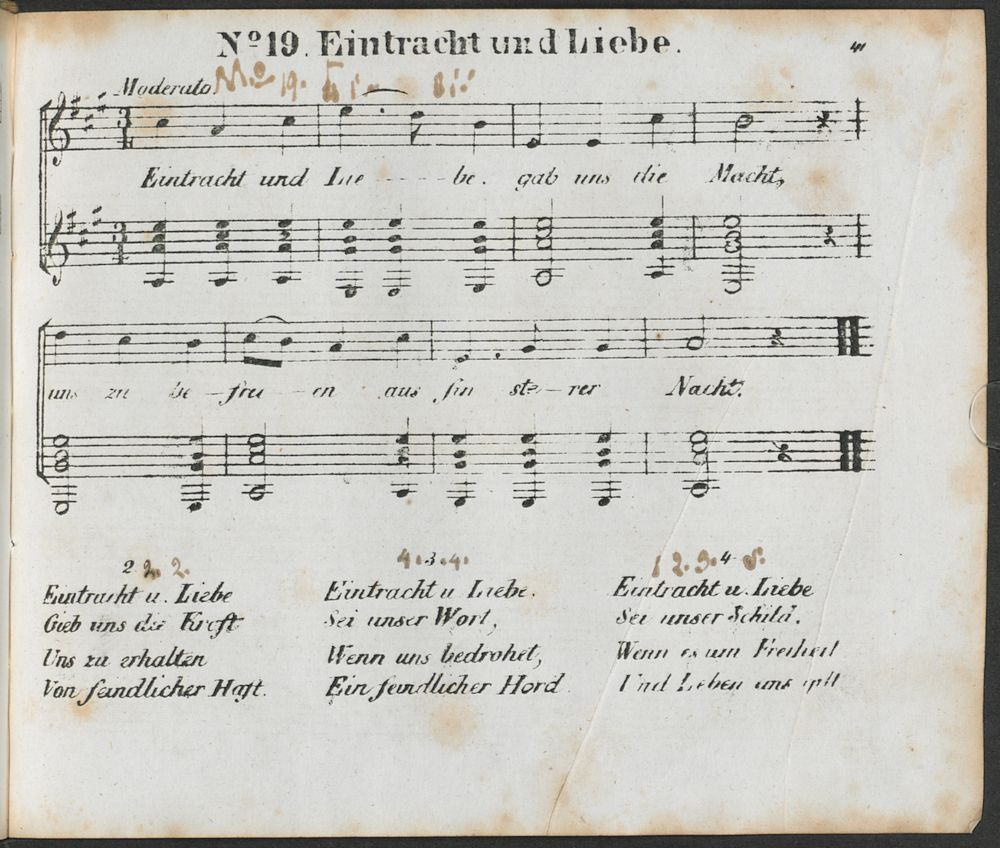 Nº 19. Eintracht und Liebe.
41
Moderato.
Nº 19.
Eintracht und Lie - - - - be. gab uns die Macht,
uns zu be - frei - en aus fin ste - rer Nacht.
2 2. 2.
Eintracht u. Liebe
Gieb uns die Kraft
Uns zu erhalten
Von feindlicher Haft.
4. 3. 4.
Eintracht u Liebe.
Sei unser Wort,
Wenn uns bedrohet,
Ein feindlicher Hord
1 2. 3. 4
Eintracht u. Liebe
Sei unser Schild.
Wenn es um Freiheit
Und Leben uns gilt